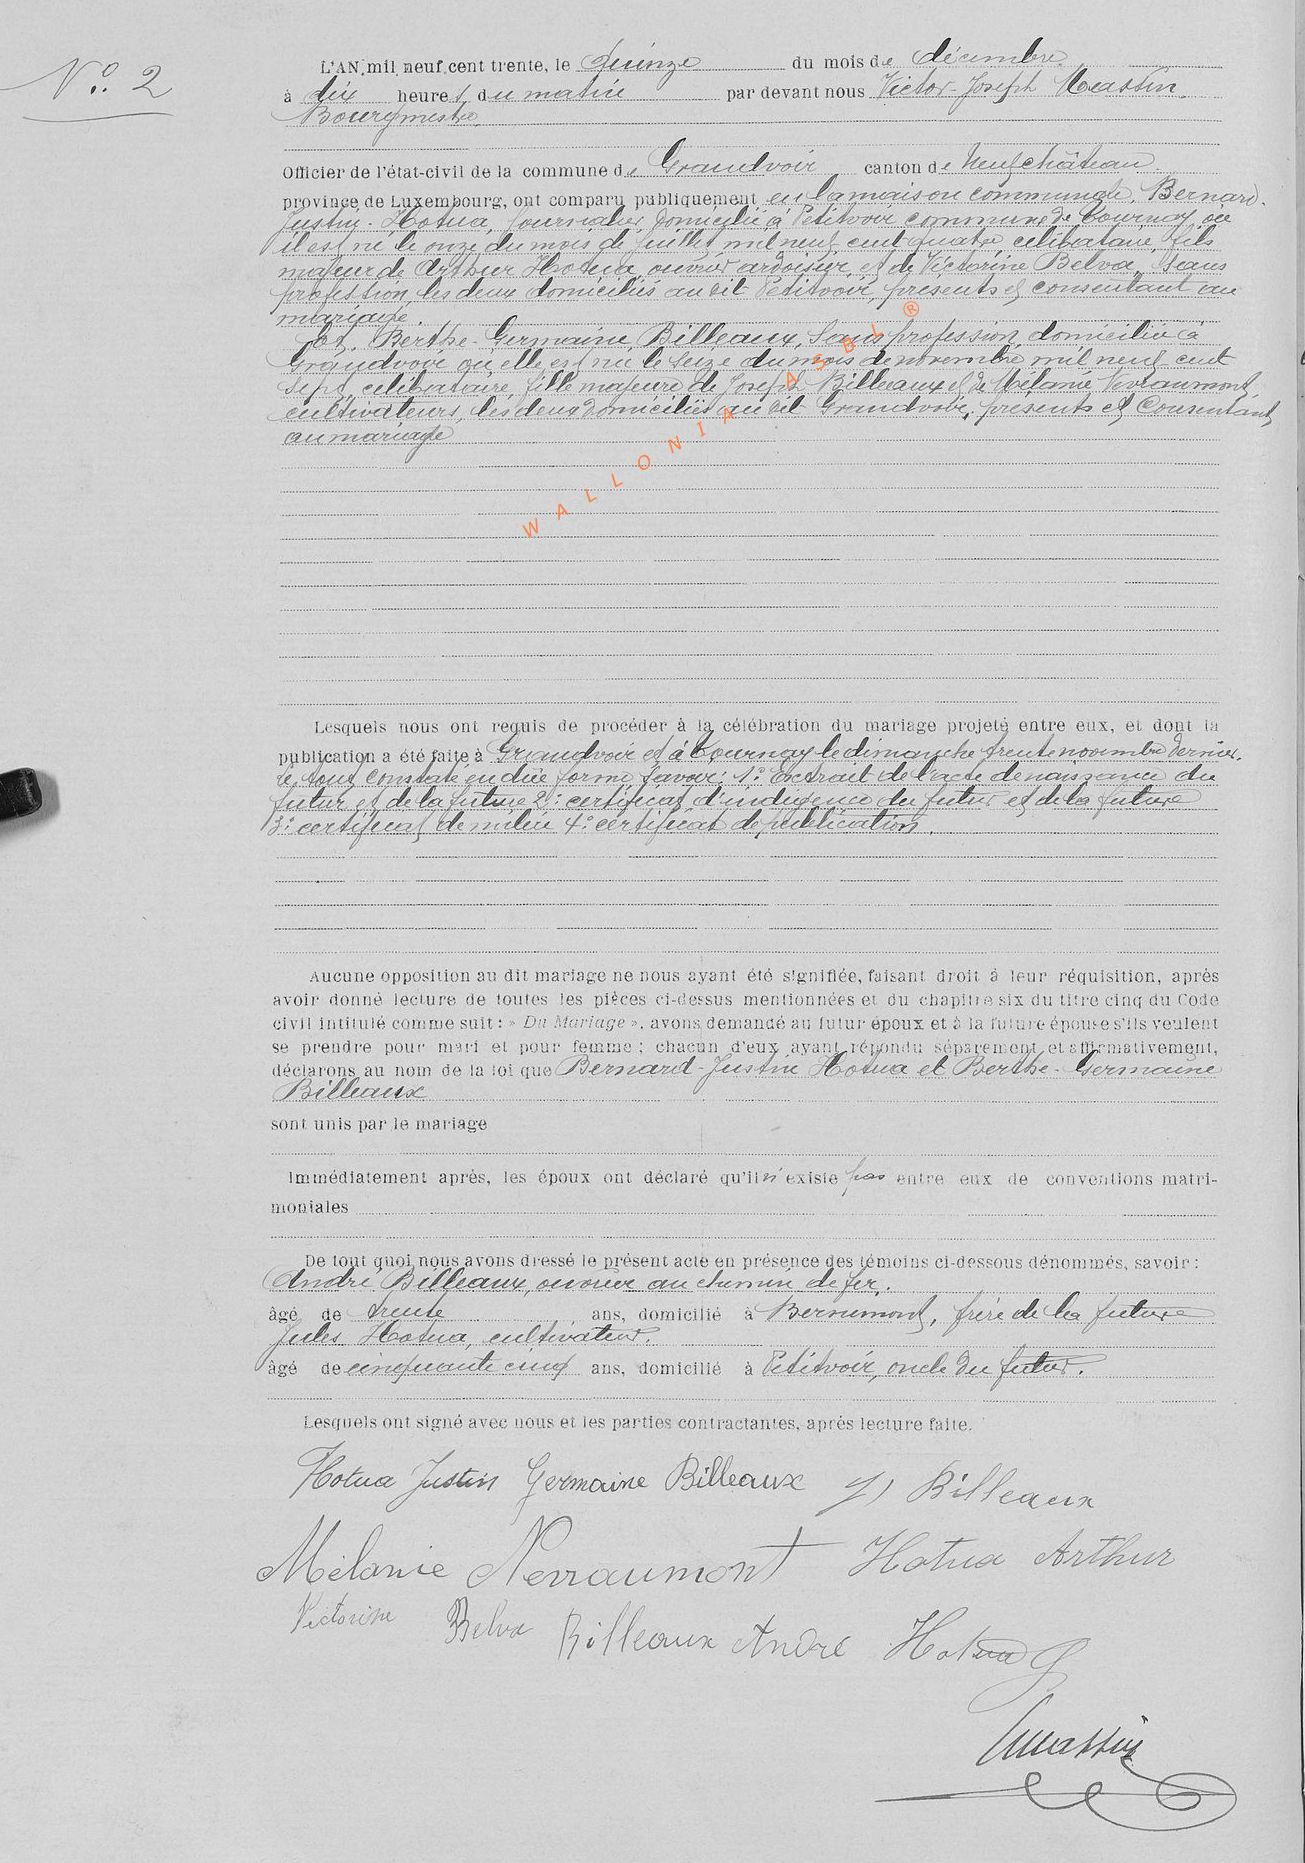 N° 2
L'AN mil neuf cent trente, le quinze du mois de décembre
à dix heures du matin par devant nous Victor-Joseph Massin
Bourgmestre
Officier de l'état-civil de la commune de Grandvoir canton de Neufchâteau
province de Luxembourg, ont comparu publiquement en la maison communale, Bernard-
Justin Hotua, journalier, domicilié à Petitvoir commune de Tournay, où
il est né le onze du mois de juillet mil neuf cent quatre, célibataire, fils
majeur de Arthur Hotua, ouvrier ardoisier, et de Victorine Belva, sans
profession, les deux domiciliés au dit Petitvoir, présents et consentant au
mariage.
Et Berthe-Germaine Billeaux, sans profession, domiciliée à
Grandvoir où elle est née le seize du mois de novembre mil neuf cent
sept, célibataire, fille majeure de Joseph Billeaux et de Mélanie Nerraumont,
cultivateurs, les deux domiciliés au dit Grandvoir, présents et consentant
au mariage
WALLONIA ASBL ®
Lesquels nous ont requis de procéder à la célébration du mariage projeté entre eux, et dont la
publication a été faite à Grandvoir et à Tournay le dimanche trente novembre dernier,
le tout constaté en due forme savoir: 1° Extrait de l'acte de naissance du
futur et de la future 2° certificat d'indigence du futur et de la future
3° certificat de milice 4° certificat de publication.
Aucune opposition au dit mariage ne nous ayant été signifiée, faisant droit à leur réquisition, après
avoir donné lecture de toutes les pièces ci-dessus mentionnées et du chapitre six du titre cinq du Code
civil intitulé comme suit: « Du Mariage », avons demandé au futur époux et à la future épouse s'ils veulent
se prendre pour mari et pour femme; chacun d'eux ayant répondu séparement et affirmativement,
déclarons au nom de la loi que Bernard-Justin Hotua et Berthe-Germaine
Billeaux
sont unis par le mariage
Immédiatement après, les époux ont déclaré qu'il n'existe pas entre eux de conventions matri-
moniales
De tout quoi nous avons dressé le présent acte en présence des témoins ci-dessous dénommés, savoir:
André Billeaux, ouvrier au chemin de fer,
âgé de trente ans, domicilié à Bernimont, frère de la future
Jules Hotua, cultivateur.
âgé de cinquante cinq ans, domicilié à Petitvoir, oncle du futur.
Lesquels ont signé avec nous et les parties contractantes, après lecture faite.
Hotua Justin Germaine Billeaux J Billeaux
Mélanie Nerraumont Hotua Arthur
Victorine Belva Billeaux André Hotua J
Massin